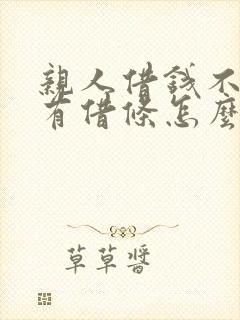 親人借錢不
有借條怎麼
草草醬